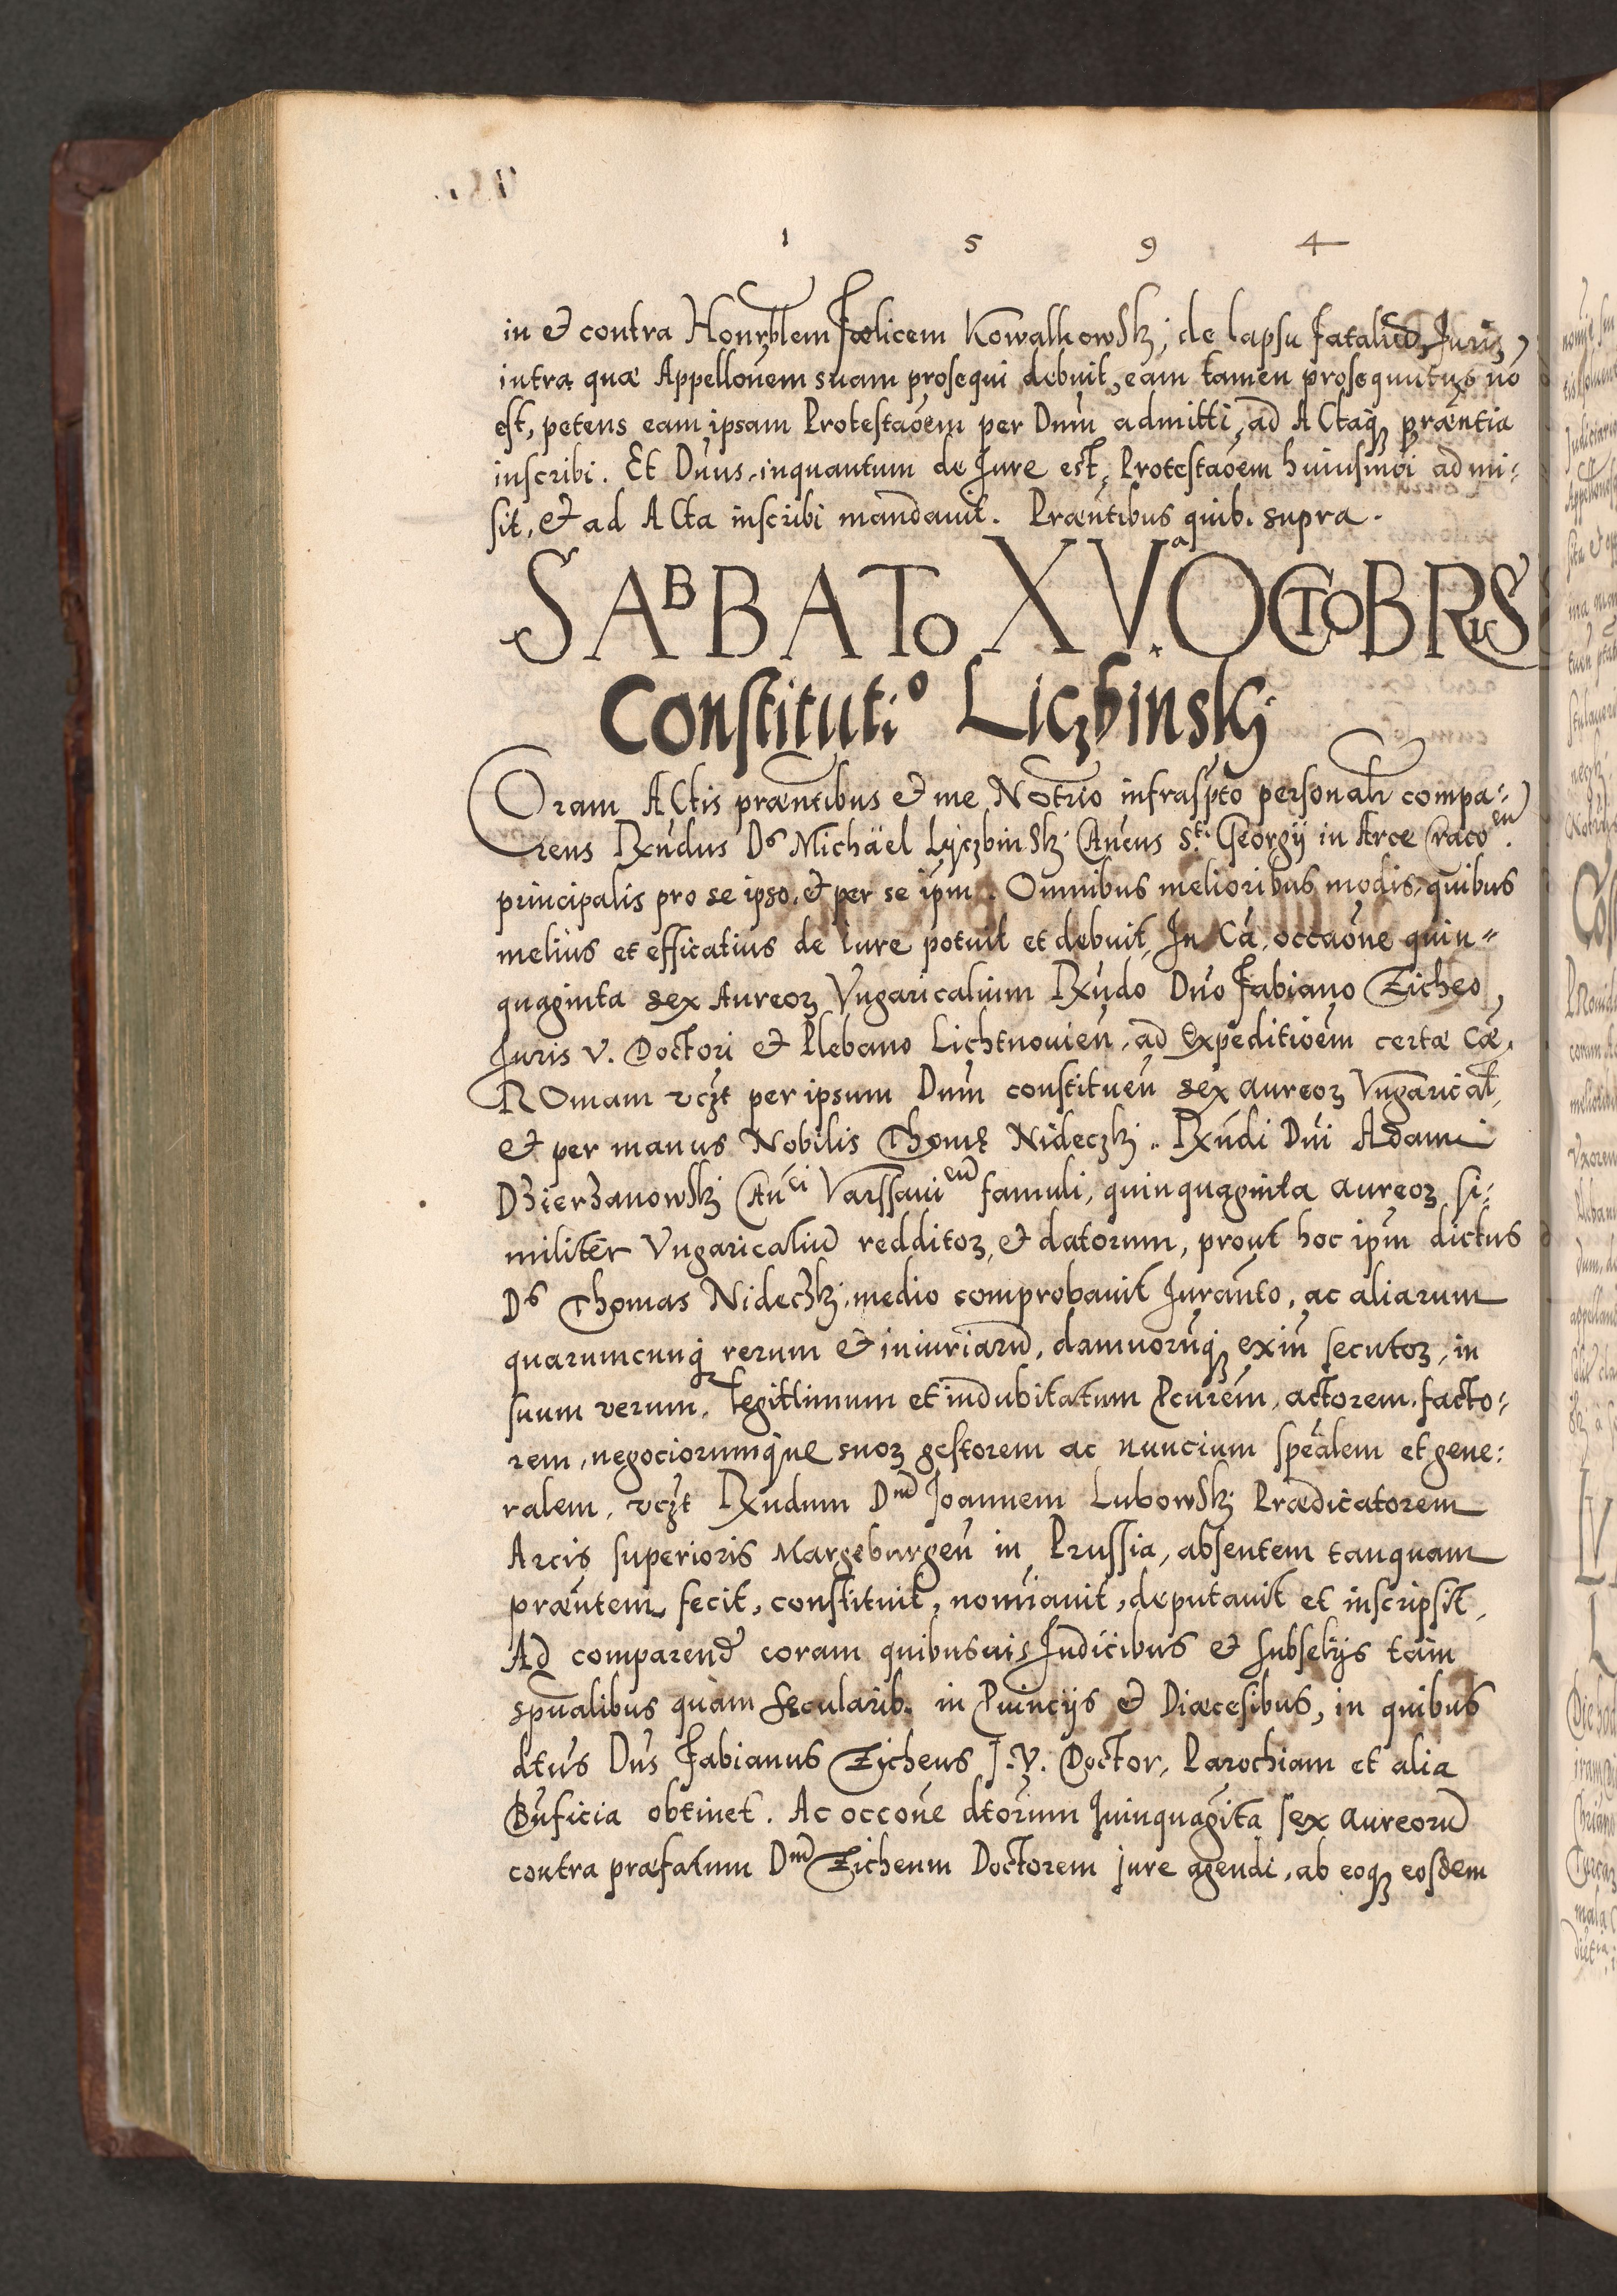 1 5 9 4
in et contra Honrblem Fœlicem Kowalkowskj, de lapsu fataliũ Juris,
intra quæ Appellõnem suam prosequi debuit, eam tamen prosequutus nõ
est, petens eam ipsam Protestaõem per Dnũm admitti, ad Actaq; præntia
inscribi. Et Dnus, inquantum de Jure est, Protestaõem huiusmõi admi⸗
sit, et ad Acta inscribi mandauit. Præntibus quib. supra.
SABBATO XV.ª OCTOBRIS
Constitutio Liczbinskj
Coram Actis præntibus et me Notrio infraspto personalr compa⸗
rens Rxndus Ds Michäel Lyczbinskj Cñcus S.ti Georgij in Arce Cracoen.
principalis pro se ipso, et per se ipm. Omnibus melioribus modis, quibus
melius et efficatius de iure potuit et debuit, In Cã, occaõne quin⸗
quaginta sex Aureoꝝ Vngaricalium Rxndo Dño Fabiano Zicheo,
Juris V. Doctori et Plebano Lichtnouieñ, ad Expeditioem certæ Cæ,
Romam vczt per ipsum Dnũm constitueñ sex aureoꝝ Vngarical,
et per manus Nobilis Thomę Nideczkj, Rxndi Dni Adami
Dzierzanowskj Cñci Varssauien famuli, quinquaginta aureoꝝ si⸗
militer Vngaricaliũ redditoꝝ, et datorum, prout hoc ipm dictus
Ds Thomas Nideczkj, medio comprobauit Juranto, ac aliarum
quarumcunq; rerum et iniuriarũ, damnorũq; exiñ secutoꝝ, in
suum verum, legittimum et indubitatum Pcurem, actorem, facto⸗
rem, negociorumque suoꝝ gestorem ac nuncium speãlem et gene⸗
ralem, vczt Rxndum Dnm Joannem Lubowskj Prædicatorem
Arcis superioris Margeburgeñ in Prussia, absentem tanquam
præntem, fecit, constituit, nomiauit, deputauit et inscripsit,
Ad comparend coram quibusuis Judicibus et subselijs tam
spũalibus quàm sęcularib. in Puincijs et Diæcesibus, in quibus
dtus Dñs Fabianus Zicheus J. V. Doctor, Parochiam et alia
Bñficia obtinet. Ac occoñe dtorum Quinquagita sex aureorũ
contra præfatum Dnm Zicheum Doctorem jure agendi, ab eoq; eosdem